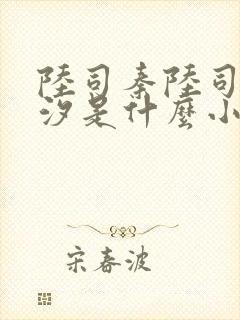 陸司秦陸司
汐是什麼小
宋春波